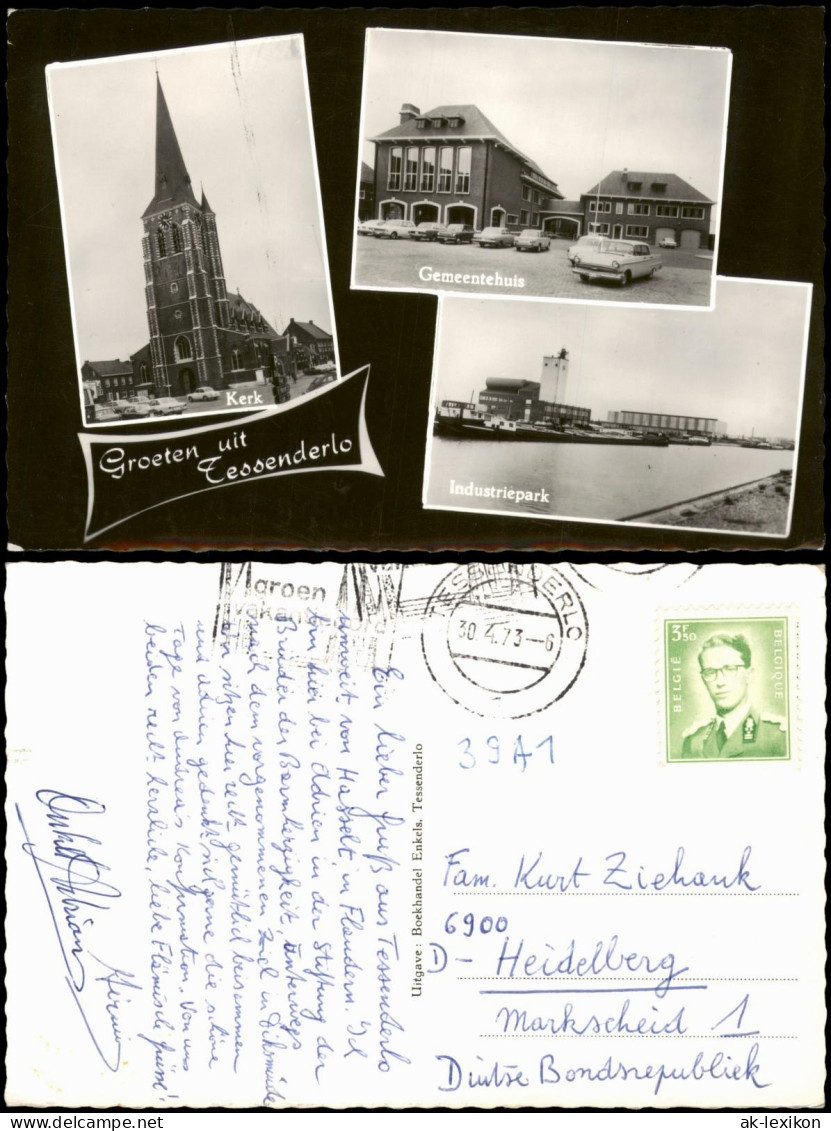 Kerk
Gemeentehuis
Industriepark
Groeten uit
Tessenderlo
groen
TESSENDERLO
30.4.73-6
3F50
BELGIË
BELGIQUE
39A1
Ein lieber Gruß aus Tessenderlo
unweit von Hasselt, in Flandern. Ich
bin hier bei Adrien in der Stiftung der
Brüder der Barmherzigkeit, unterwegs
nach dem vorgenommenen Ziel in Diksmuide
sitzen hier recht gemütlich beisammen
und Adrien gedenkt sich gerne die schöne
Tage von Andrea's Konfirmation. Von uns
beiden recht herzliche, liebe Flämische Grüsse!
Uitgave: Boekhandel Enkels, Tessenderlo
Fam. Kurt Ziehank
6900
D- Heidelberg
Markscheid 1
Diutse Bondsrepubliek
© ak-lexikon
ak-lexikon.com